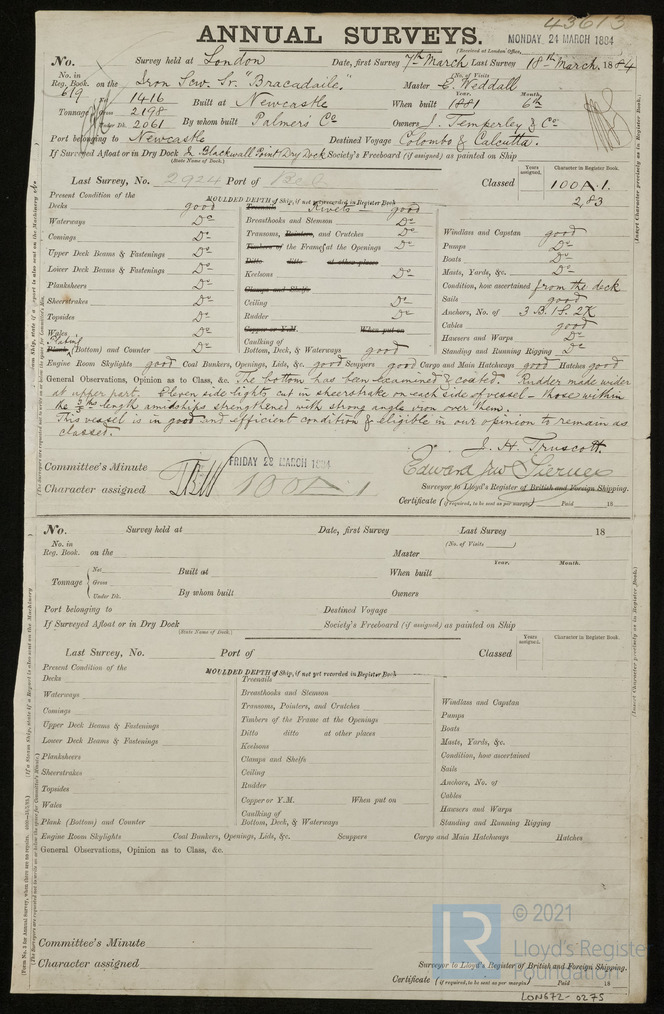 43613
ANNUAL SURVEYS.
MONDAY 24 MARCH 1884
(Received at London Office,
No. Survey held at London Date, first Survey 7th March Last Survey 18th March. 1884
(No. of Visits
No. in Reg. Book. 619 on the Iron Scw. Sr. "Bracadaile." Master E. Weddall
Net 1416 Built at Newcastle When built Year. 1881 Month. 6th
Tonnage Gross 2198
Under Dk. 2061 By whom built Palmers Co Owners J. Temperley & Co
Port belonging to Newcastle Destined Voyage Colombo & Calcutta.
If Surveyed Afloat or in Dry Dock & Blackwall Point Dry Dock Society's Freeboard (if assigned) as painted on Ship
(State Name of Dock.)
Years assigned. Character in Register Book.
Last Survey, No. 2924 Port of Classed 100 A.1.
2,83
MOULDED DEPTH of Ship, if not yet recorded in Register Book
Present Condition of the
Decks good Treenails Rivets good
Waterways Do Breasthooks and Stemson Do Windlass and Capstan good
Comings Do Transoms, Pointers, and Crutches Do Pumps Do
Timbers of the Frame at the Openings Do Boats Do
Upper Deck Beams & Fastenings Do Ditto ditto at other places Masts, Yards, &c. Do
Lower Deck Beams & Fastenings Do Keelsons Do
Planksheers Do Clamps and Shelfs Condition, how ascertained from the deck
Sheerstrakes Do Ceiling Do Sails good
Topsides Do Rudder Do Anchors, No. of 3 B. 1 S. 2 K
Wales Do Copper or Y.M. When put on Cables good
Plating Caulking of Hawsers and Warps Do
Plank (Bottom) and Counter Do Bottom, Deck, & Waterways good Standing and Running Rigging Do
Engine Room Skylights good Coal Bunkers, Openings, Lids, &c. good Scuppers good Cargo and Main Hatchways good Hatches good
General Observations, Opinion as to Class, &c. The bottom has been examined & coated. Rudder made wider
at upper part. Eleven side lights cut in sheerstrake on each side of vessel - those within
the length amidships strengthened with strong angle iron over them.
This vessel is in good and efficient condition & eligible in our opinion to remain as
classed.
J. H. Truscott.
Committee's Minute FRIDAY 28 MARCH 1884
Character assigned 100 A 1
Surveyor to Lloyd's Register of British and Foreign Shipping.
Certificate (if required, to be sent as per margin) Paid 18
No. Survey held at Date, first Survey Last Survey 18
(No. of Visits )
No. in Reg. Book. on the Master
Year. Month.
Net Built at When built
Tonnage Gross
Under Dk. By whom built Owners
Port belonging to Destined Voyage
If Surveyed Afloat or in Dry Dock Society's Freeboard (if assigned) as painted on Ship
(State Name of Dock.)
Years assigned. Character in Register Book.
Last Survey, No. Port of Classed
MOULDED DEPTH of Ship, if not yet recorded in Register Book
Present Condition of the
Decks Treenails
Waterways Breasthooks and Stemson Windlass and Capstan
Comings Transoms, Pointers, and Crutches Pumps
Upper Deck Beams & Fastenings Timbers of the Frame at the Openings Boats
Lower Deck Beams & Fastenings Ditto ditto at other places Masts, Yards, &c.
Planksheers Keelsons Condition, how ascertained
Sheerstrakes Clamps and Shelfs Sails
Topsides Ceiling Anchors, No. of
Wales Rudder Cables
Copper or Y.M. When put on Hawsers and Warps
Plank (Bottom) and Counter Caulking of Bottom, Deck, & Waterways Standing and Running Rigging
Engine Room Skylights Coal Bunkers, Openings, Lids, &c. Scuppers Cargo and Main Hatchways Hatches
General Observations, Opinion as to Class, &c.
Committee's Minute
Character assigned
Surveyor to Lloyd's Register of British and Foreign Shipping.
Certificate (if required, to be sent as per margin) Paid 18
LR
© 2021
Lloyd's Register
Foundation
LON672-0275